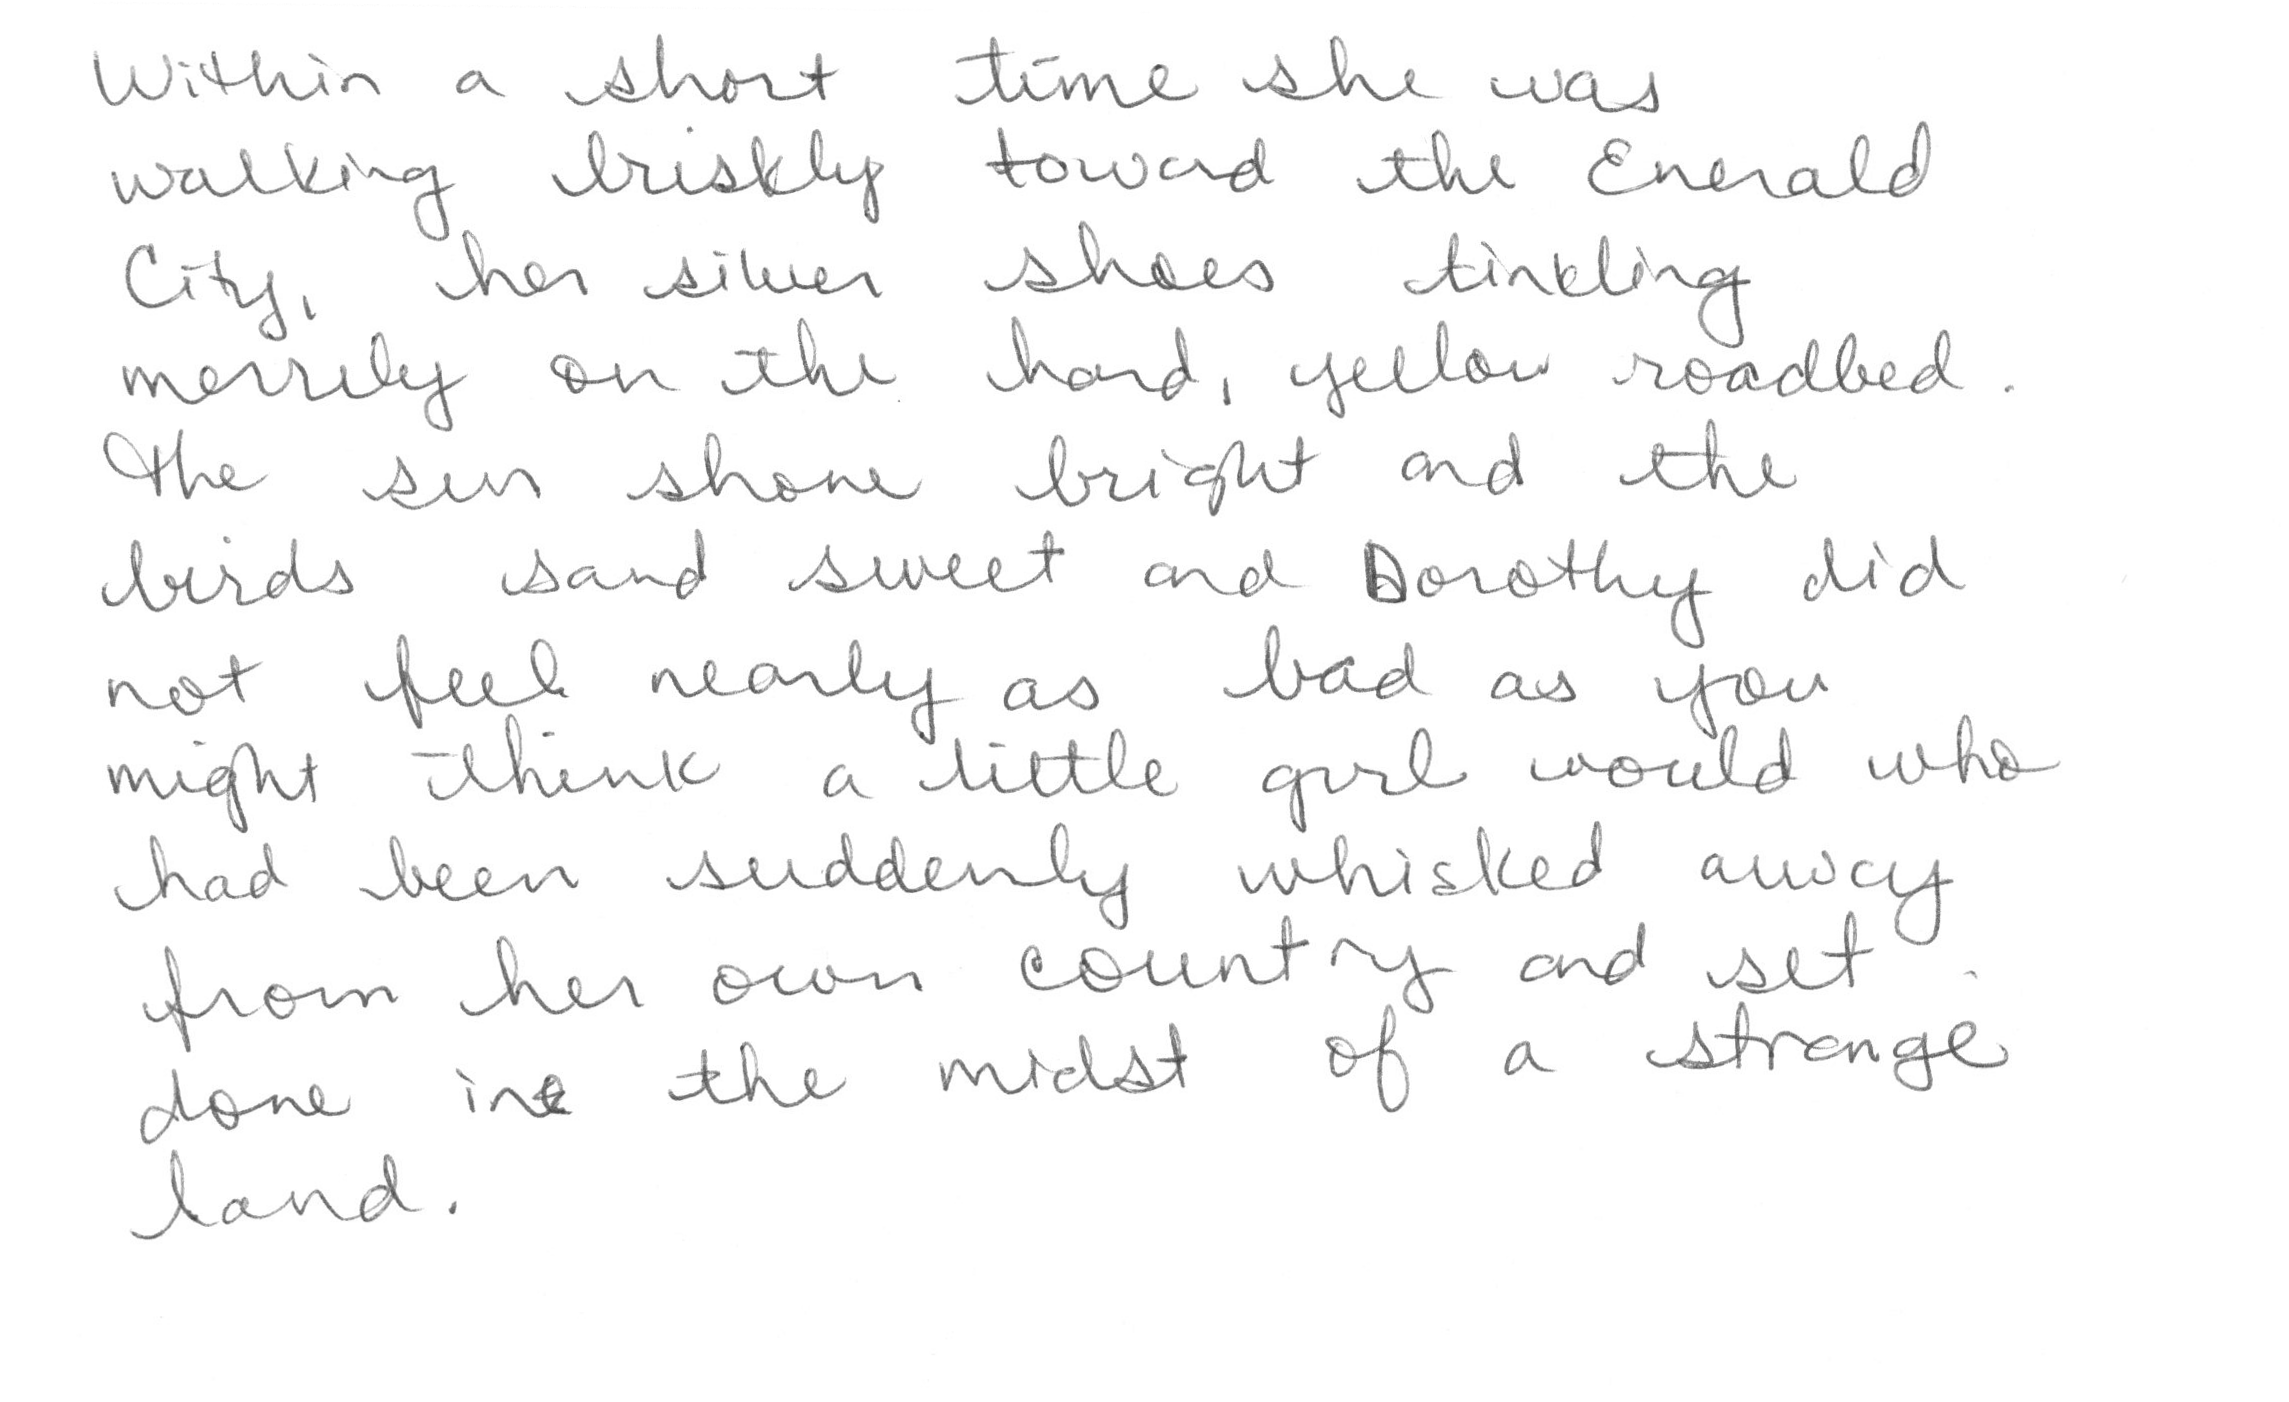 Within a short time she was
walking briskly toward the Enerald
City, her silver shoes tinkling
merrily on the hard, yellow roadbed.
The sun shone bright and the
birds sand sweet and Dorothy did
not feel nearly as bad as you
might think a little girl would who
had been suddenly whisked away
from her own country and set
done in the midst of a strange
land.